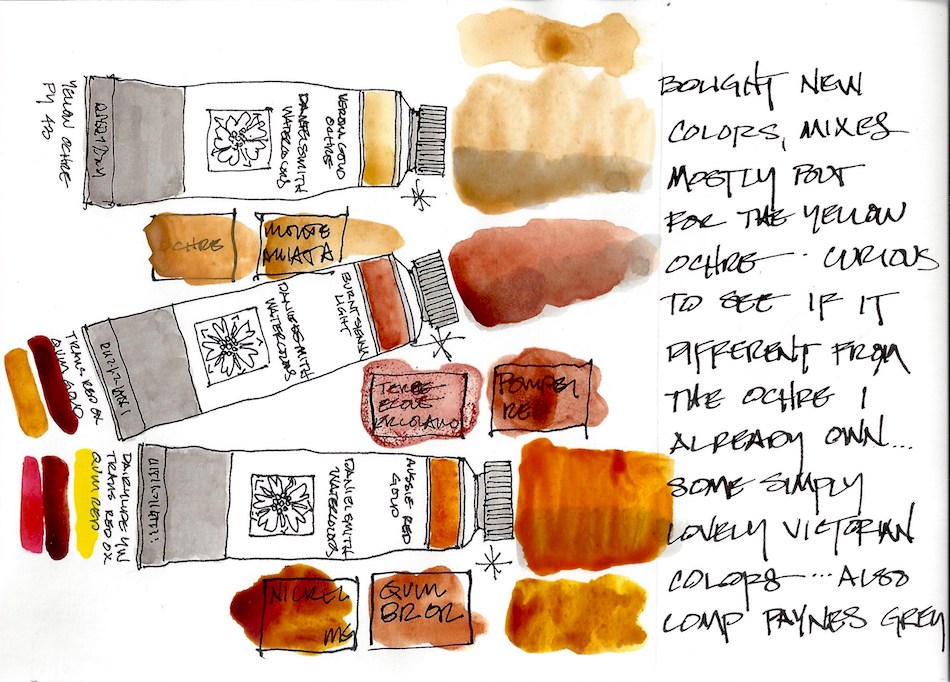 BOUGHT NEW
COLORS, MIXES
MOSTLY BUT
FOR THE YELLOW
OCHRE.. CURIOUS
TO SEE IF IT
DIFFERENT FROM
THE OCHRE I
ALREADY OWN...
SOME SIMPLY
LOVELY VICTORIAN
COLORS...ALSO
COMP PAYNES GREY
YELLOW OCHRE
PY 43
DANIEL SMITH
WATERCOLORS
VERONA GOLD
OCHRE
OCHRE
MONTE
AMIATA
TRANS RED OX
QUIN GOLD
DANIEL SMITH
WATERCOLORS
BURNT SIENNA
LIGHT
TERRE
ERCOLANO
POMPEI
RED
TRANS RED OX
QUIN RED
DANIEL SMITH
WATERCOLORS
AUSSIE RED
GOLD
NICKEL
QUIN
BR OR